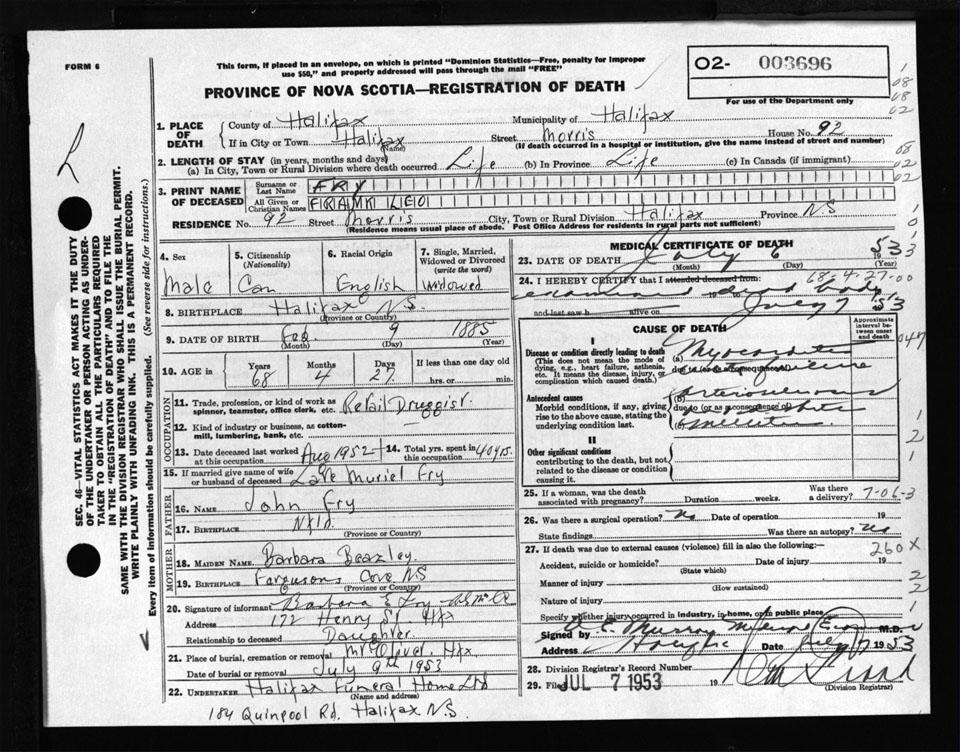 FORM 6
This form, if placed in an envelope, on which is printed "Dominion Statistics—Free, penalty for improper
use $50," and properly addressed will pass through the mail "FREE"
O2- 003696
For use of the Department only
PROVINCE OF NOVA SCOTIA—REGISTRATION OF DEATH
1. PLACE OF DEATH
County of Halifax Municipality of Halifax
If in City or Town Halifax (Name) Street Morris House No. 92
(If death occurred in a hospital or institution, give the name instead of street and number)
2. LENGTH OF STAY (in years, months and days)
(a) In City, Town or Rural Division where death occurred Life (b) In Province Life (c) In Canada (if immigrant)
3. PRINT NAME OF DECEASED
Surname or Last Name FRY
All Given or Christian Names FRANK LEO
RESIDENCE No. 92 Street Morris City, Town or Rural Division Halifax Province N.S
(Residence means usual place of abode. Post Office Address for residents in rural parts not sufficient)
4. Sex Male
5. Citizenship (Nationality) Can
6. Racial Origin English
7. Single, Married, Widowed or Divorced (write the word) Widowed
8. BIRTHPLACE Halifax N.S.
(Province or Country)
9. DATE OF BIRTH Feb. 9 1885
(Month) (Day) (Year)
10. AGE in Years 68 Months 4 Days 27 If less than one day old
hrs. or min.
OCCUPATION
11. Trade, profession, or kind of work as
spinner, teamster, office clerk, etc. Retail Druggist
12. Kind of industry or business, as cotton-
mill, lumbering, bank, etc. —
13. Date deceased last worked at this occupation Aug 1952
14. Total yrs. spent in this occupation 40 yrs.
15. If married give name of wife
or husband of deceased Late Muriel Fry
FATHER
16. NAME John Fry
17. BIRTHPLACE Nfld.
(Province or Country)
MOTHER
18. MAIDEN NAME Barbara Beazley
19. BIRTHPLACE Fergusons Cove NS
(Province or Country)
20. Signature of informant Barbara E Fry
Address 172 Henry St. Hfx
Relationship to deceased Daughter
21. Place of burial, cremation or removal Mt Olivet. Hfx.
Date of burial or removal July 9th 1953
22. UNDERTAKER Halifax Funeral Home Ltd
(Name and address)
184 Quinpool Rd. Halifax N.S.
MEDICAL CERTIFICATE OF DEATH
23. DATE OF DEATH July 6 1953
(Month) (Day) (Year)
68-4-27-00
24. I HEREBY CERTIFY that I attended deceased from:
examined dead body
and last saw h alive on July 7 1953
CAUSE OF DEATH
Approximate interval between onset and death
I
Disease or condition directly leading to death
(This does not mean the mode of dying, e.g., heart failure, asthenia, etc. It means the disease, injury, or complication which caused death.)
(a) Myocarditis
due to (or as a consequence of)
Antecedent causes
Morbid conditions, if any, giving rise to the above cause, stating the underlying condition last.
due to (or as a consequence of)
II
Other significant conditions
contributing to the death, but not related to the disease or condition causing it.
25. If a woman, was the death
associated with pregnancy? Duration weeks. Was there a delivery? 7-06-3
26. Was there a surgical operation? No Date of operation 19
State findings Was there an autopsy? No
27. If death was due to external causes (violence) fill in also the following:— 260 X
Accident, suicide or homicide? Date of injury 19
(State which)
Manner of injury
(How sustained)
Nature of injury
Specify whether injury occurred in industry, in home, or in public place
Signed by Murray M.D.
Address Halifax Date July 7 1953
28. Division Registrar's Record Number
29. Filed JUL 7 1953 19
(Division Registrar)
SEC. 46—VITAL STATISTICS ACT MAKES IT THE DUTY
OF THE UNDERTAKER OR PERSON ACTING AS UNDER-
TAKER TO OBTAIN ALL THE PARTICULARS REQUIRED
IN THE "REGISTRATION OF DEATH" AND TO FILE THE
SAME WITH THE DIVISION REGISTRAR WHO SHALL ISSUE THE BURIAL PERMIT.
WRITE PLAINLY WITH UNFADING INK. THIS IS A PERMANENT RECORD.
Every item of information should be carefully supplied. (See reverse side for instructions.)